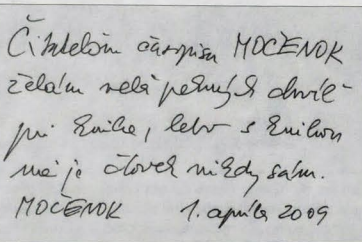 Čitateľom časopisu MOČENOK
želám veľa pekných chvíľ
pri knihe, lebo s knihou
nie je človek nikdy sám.
MOČENOK 1. apríla 2009